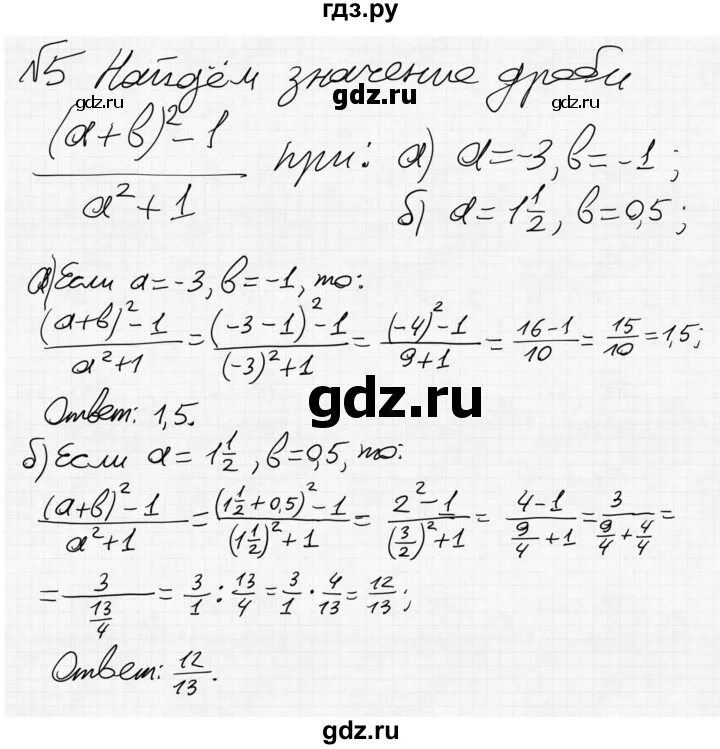 гдз.ру
№5 Найдём значение дроби
gdz.ru gdz.ru gdz.ru
((a+b)²-1)/(a²+1) при: а) a=-3, b=-1;
б) a=1 1/2, b=0,5;
а) Если a=-3, b=-1, то:
((a+b)²-1)/(a²+1) = ((-3-1)²-1)/((-3)²+1) = ((-4)²-1)/(9+1) = (16-1)/10 = 15/10 = 1,5;
gdz.ru
Ответ: 1,5.
б) Если a=1 1/2, b=0,5, то:
((a+b)²-1)/(a²+1) = ((1 1/2+0,5)²-1)/((1 1/2)²+1) = (2²-1)/((3/2)²+1) = (4-1)/(9/4+1) = 3/(9/4+4/4) =
= 3/(13/4) = 3/1 : 13/4 = 3/1 · 4/13 = 12/13;
Ответ: 12/13.
gdz.ru gdz.ru
gdz.ru